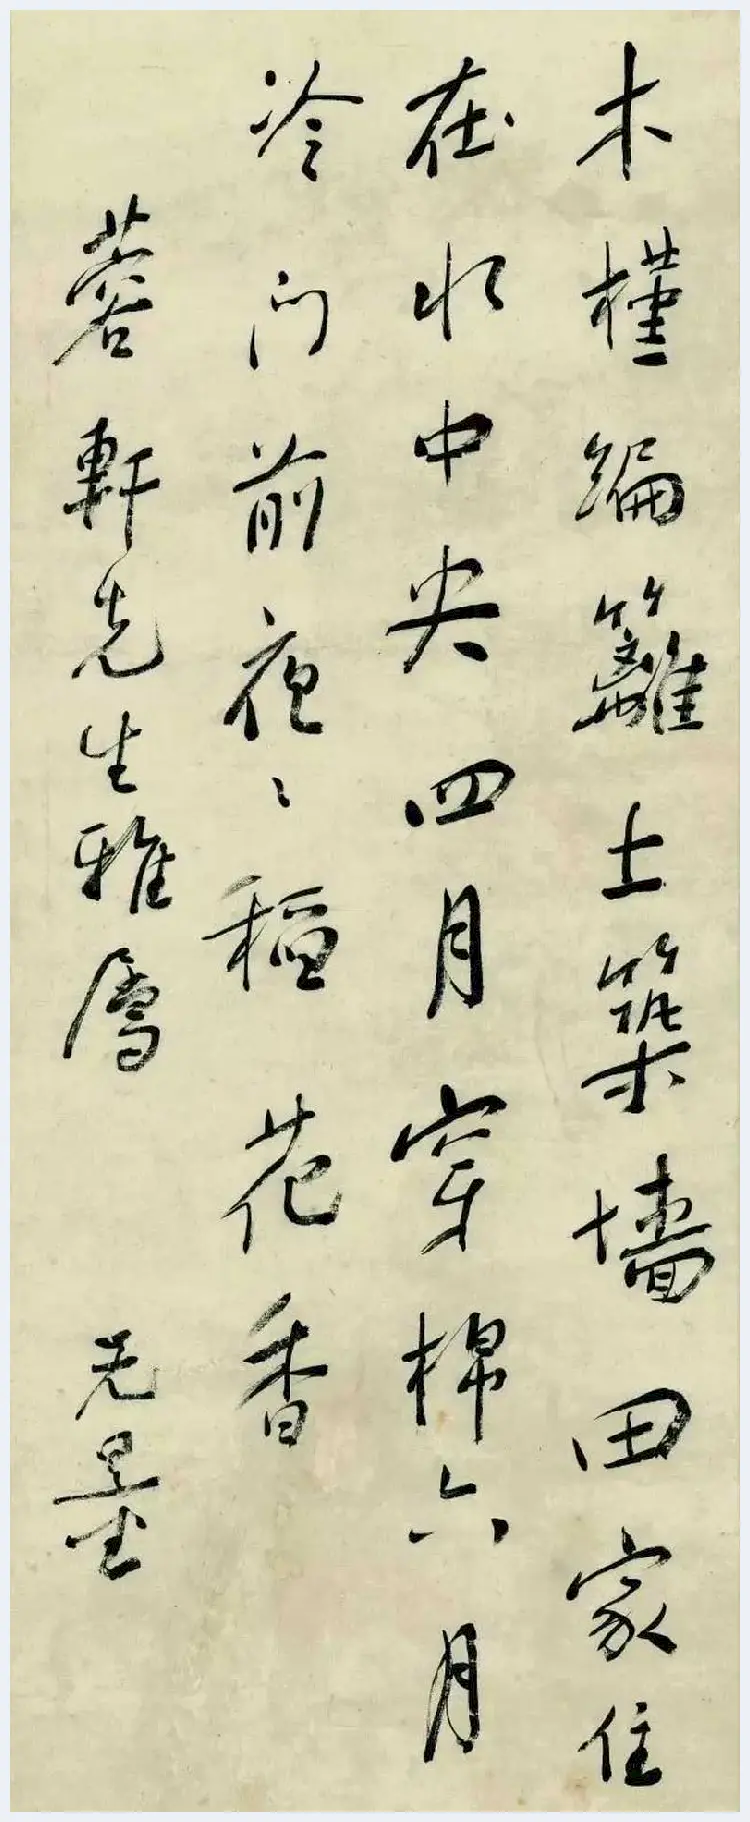 木槿編籬土築墻田家住
在水中央四月穿棉六月
冷门前夜〻稻花香
蓉軒先生雅屬 无量